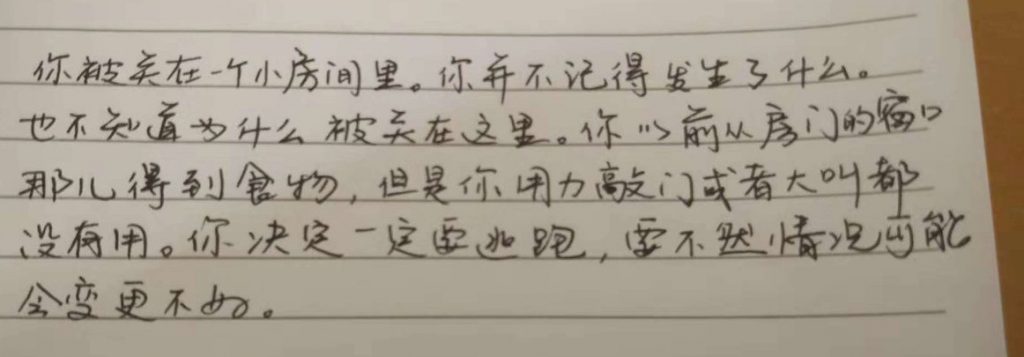 你被关在一个小房间里。你并不记得发生了什么。
也不知道为什么被关在这里。你以前从房门的窗口
那儿得到食物，但是你用力敲门或者大叫都
没有用。你决定一定要逃跑，要不然情况可能
会变更不好。